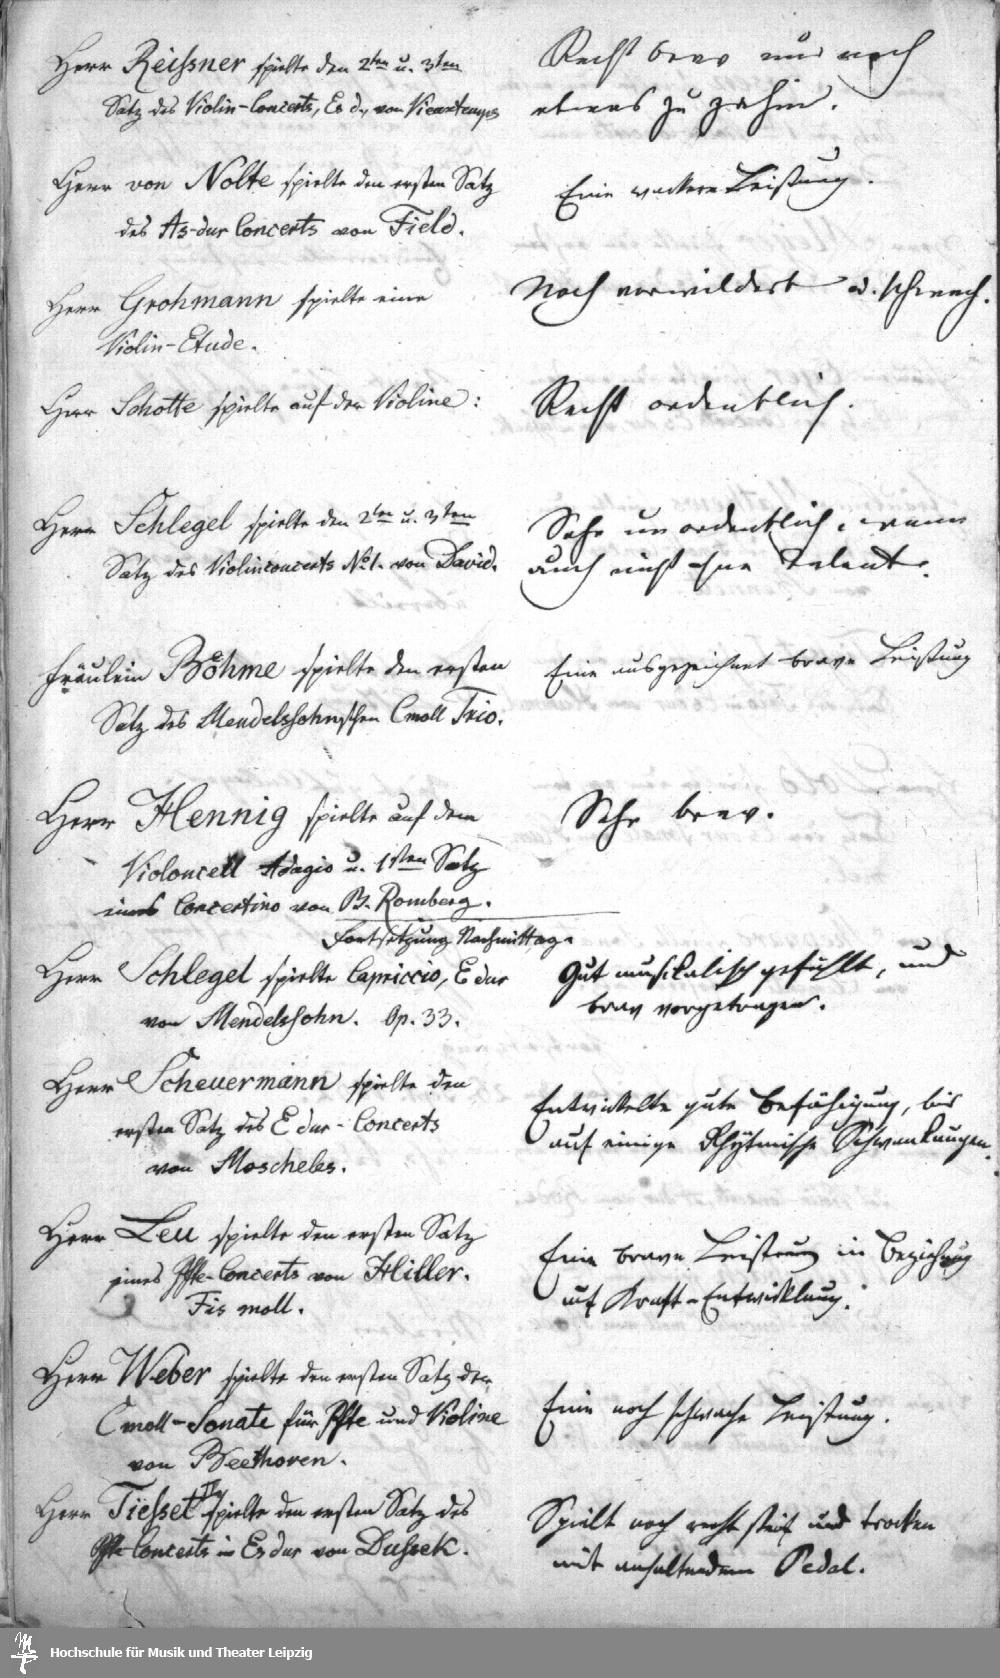 Herr Reissner spielte den 2ten u. 3ten
Satz des Violin-Concerts, Es d., von Vieuxtemps
Recht brav nur noch
etwas zu zahm.
Herr von Nolte spielte den ersten Satz
des As-dur Concerts von Field.
Eine wackere Leistung.
Herr Grohmann spielte eine
Violin-Etude.
Noch verwildert u. schwach.
Herr Schotte spielte auf der Violine:
Recht ordentlich.
Herr Schlegel spielte den 2ten u. 3ten
Satz des Violinconcerts No 1. von David.
Sehr unordentlich, wenn
auch nicht ohne Talent.
Fräulein Böhme spielte den ersten
Satz des Mendelssohnschen Cmoll Trio.
Eine ausgezeichnet brave Leistung
Herr Hennig spielte auf dem
Violoncell Adagio u. 1sten Satz
eines Concertino von B. Romberg.
Sehr brav.
Fortsetzung Nachmittag.
Herr Schlegel spielte Capriccio, E dur
von Mendelssohn. Op. 33.
Gut musikalisch gefühlt, und
brav vorgetragen.
Herr Scheuermann spielte den
ersten Satz des E dur-Concerts
von Moscheles.
Entwickelte gute Befähigung, bis
auf einige Rhÿtmische Schwankungen.
Herr Leu spielte den ersten Satz
eines Pfte-Concerts von Hiller.
Fis moll.
Eine brave Leistung in Beziehung
auf Kraft-Entwicklung.
Herr Weber spielte den ersten Satz der
Cmoll-Sonate für Pfte und Violine
von Beethoven.
Eine noch schwache Leistung.
Herr Tiesset II spielte den ersten Satz des
Pfte Concerts in Es dur von Dussek.
Spielt noch recht steif und trocken
mit anhaltendem Pedal.
Hochschule für Musik und Theater Leipzig